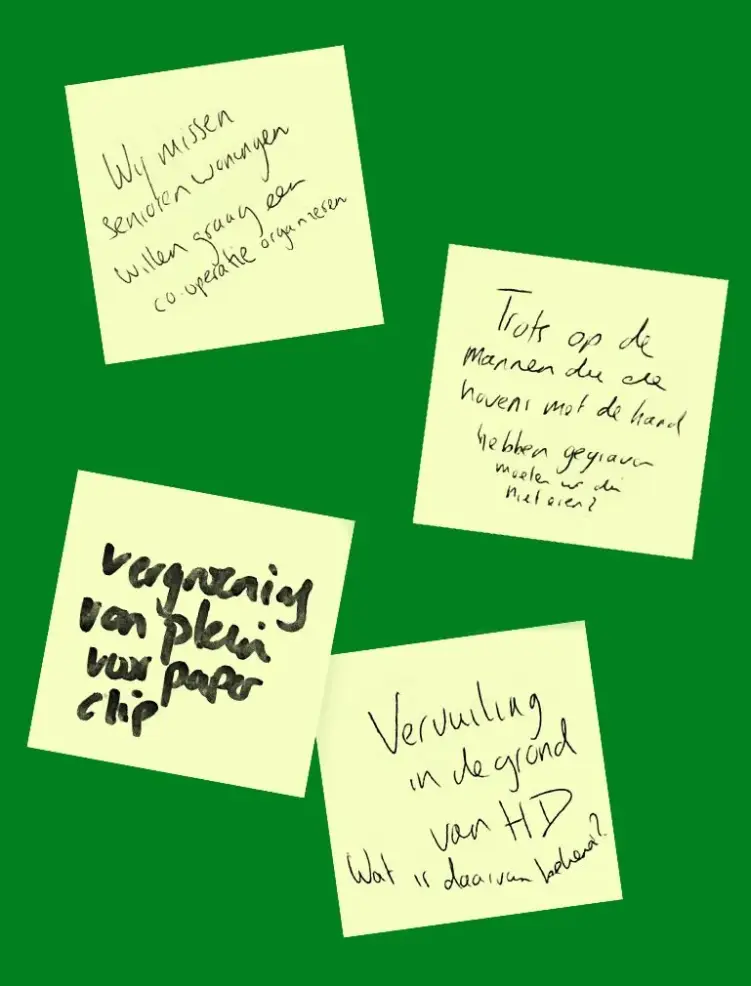 Wij missen
senioren woningen
willen graag een
co-operatie organiseren
Trots op de
mannen die de
havens met de hand
hebben gegraven
moeten we die
niet eren?
vergroening
van plein
voor paper
clip
Vervuiling
in de grond
van HD
Wat is daarvan bekend?